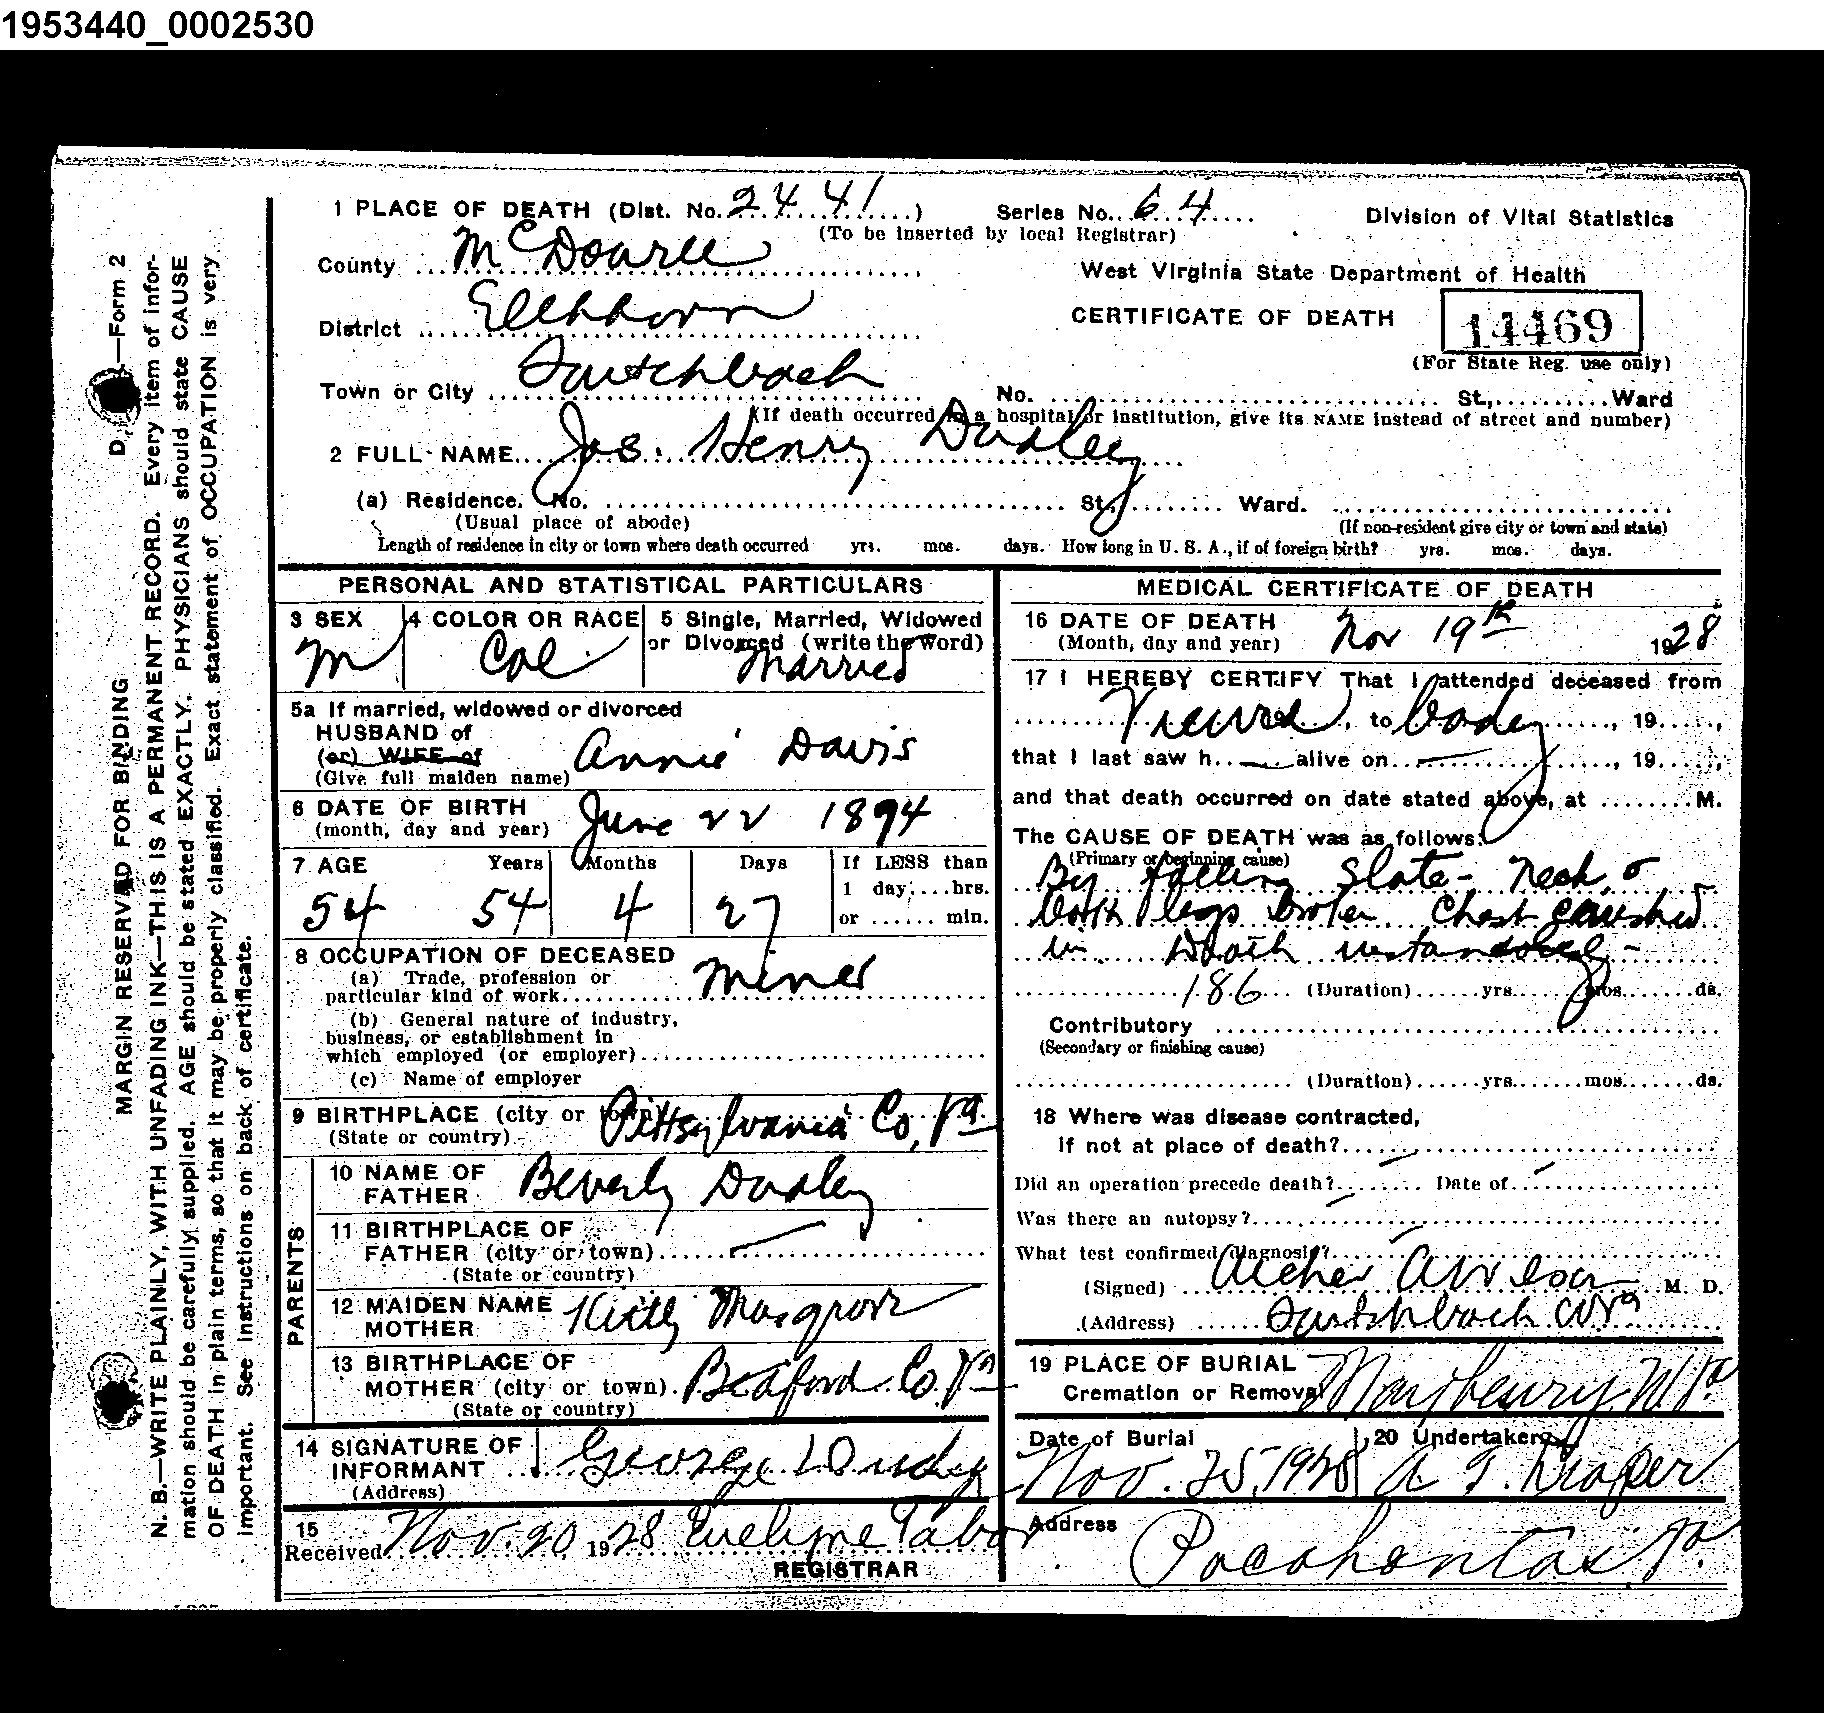 1953440_0002530
1 PLACE OF DEATH (Dist. No. 2441) Series No. 64 Division of Vital Statistics
(To be inserted by local Registrar)
County McDowell West Virginia State Department of Health
District Elkhorn CERTIFICATE OF DEATH 14469
(For State Reg. use only)
Town or City Switchback No. St., Ward
(If death occurred in a hospital or institution, give its NAME instead of street and number)
2 FULL NAME Jas. Henry Dudley
(a) Residence. No. St., Ward.
(Usual place of abode) (If non-resident give city or town and state)
Length of residence in city or town where death occurred yrs. mos. days. How long in U. S. A., if of foreign birth? yrs. mos. days.
PERSONAL AND STATISTICAL PARTICULARS
3 SEX 4 COLOR OR RACE 5 Single, Married, Widowed
or Divorced (write the word)
M Col Married
5a If married, widowed or divorced
HUSBAND of
(or) WIFE of Annie Davis
(Give full maiden name)
6 DATE OF BIRTH
(month, day and year) June 22 1894
7 AGE Years Months Days If LESS than
1 day, hrs.
54 54 4 27 or min.
8 OCCUPATION OF DECEASED
(a) Trade, profession or
particular kind of work Miner
(b) General nature of industry,
business, or establishment in
which employed (or employer)
(c) Name of employer
9 BIRTHPLACE (city or town) Pittsylvania Co, Va
(State or country)
PARENTS
10 NAME OF
FATHER Beverly Dudley
11 BIRTHPLACE OF
FATHER (city or town)
(State or country)
12 MAIDEN NAME
MOTHER Kitty Musgrove
13 BIRTHPLACE OF
MOTHER (city or town) Bedford Co. Va
(State or country)
14 SIGNATURE OF
INFORMANT George
(Address)
15
Received Nov. 20 1928 Evelyne Tabor
REGISTRAR
MEDICAL CERTIFICATE OF DEATH
16 DATE OF DEATH
(Month, day and year) Nov 19th 1928
17 I HEREBY CERTIFY That I attended deceased from
Viewed, to body, 19,
that I last saw h alive on, 19,
and that death occurred on date stated above, at M.
The CAUSE OF DEATH was as follows:
(Primary or beginning cause)
By falling Slate - Neck, &
both legs broken Chest crushed
in Death instantously -
186 (Duration) yrs. mos. ds.
Contributory
(Secondary or finishing cause)
(Duration) yrs. mos. ds.
18 Where was disease contracted,
if not at place of death?
Did an operation precede death? Date of
Was there an autopsy?
What test confirmed diagnosis?
(Signed) Archer M. D.
(Address) Switchback W Va
19 PLACE OF BURIAL
Cremation or Removal Maybeury W. Va
Date of Burial 20 Undertaker
Nov. 25, 1928 A G. Draper
Address
Pocahontas, Va.
D —Form 2
MARGIN RESERVED FOR BINDING
N. B.—WRITE PLAINLY, WITH UNFADING INK—THIS IS A PERMANENT RECORD. Every item of infor-
mation should be carefully supplied. AGE should be stated EXACTLY. PHYSICIANS should state CAUSE
OF DEATH in plain terms, so that it may be properly classified. Exact statement of OCCUPATION is very
important. See instructions on back of certificate.